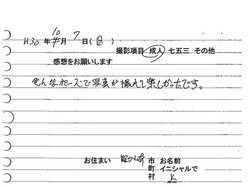 H30年10月7日(日)
撮影項目 成人 七五三 その他
感想をお願いします
色んなポーズで写真が撮れて楽しかったです。
お住まい 市 お名前
町 イニシャルで
村